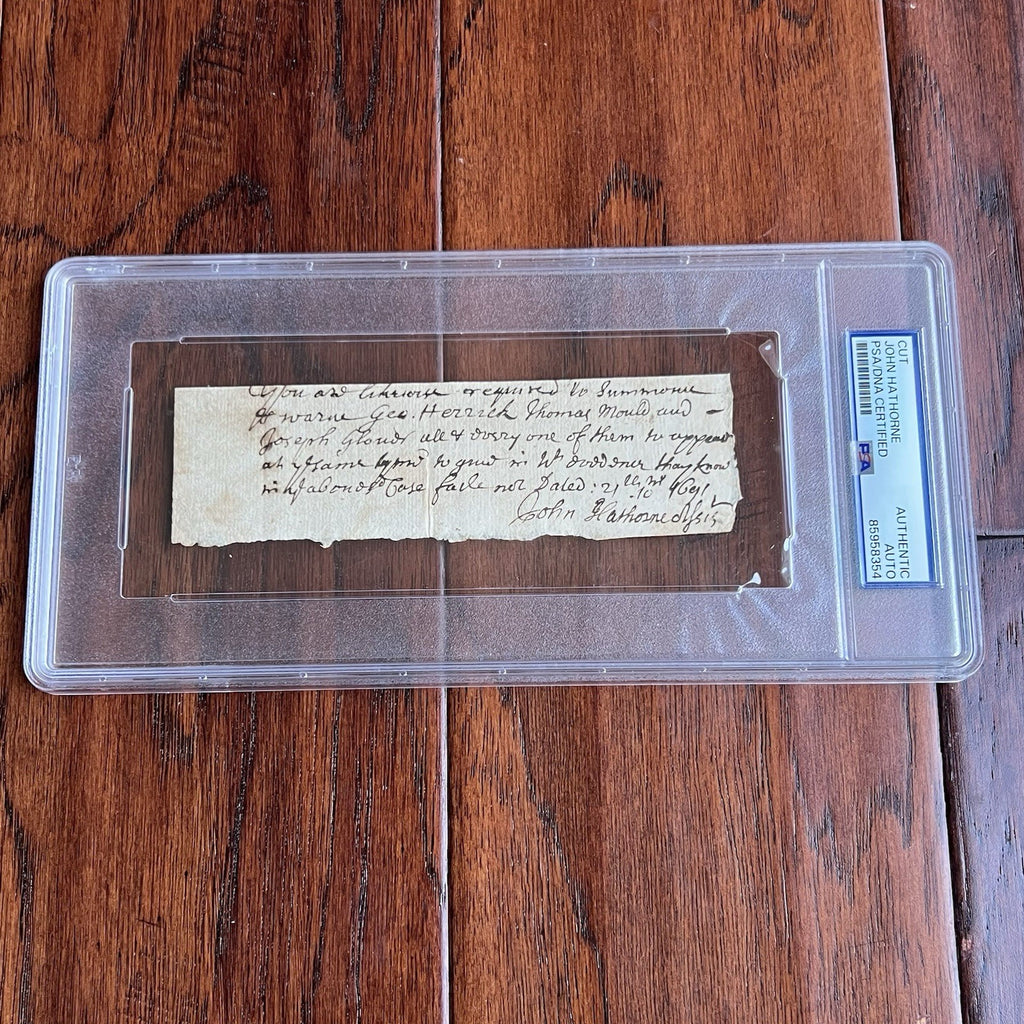 You are likewise required to Summone
& warne Geo. Herrick Thomas Mould, and -
Joseph Glover all & every one of them to appear
at ye same tyme to give in their evedence thay know
in ye aboves'd Case faile not Dated: 21 10 1691
John Hathorne Assist
CUT
JOHN HATHORNE
PSA/DNA CERTIFIED
PSA
AUTHENTIC
AUTO
85958354